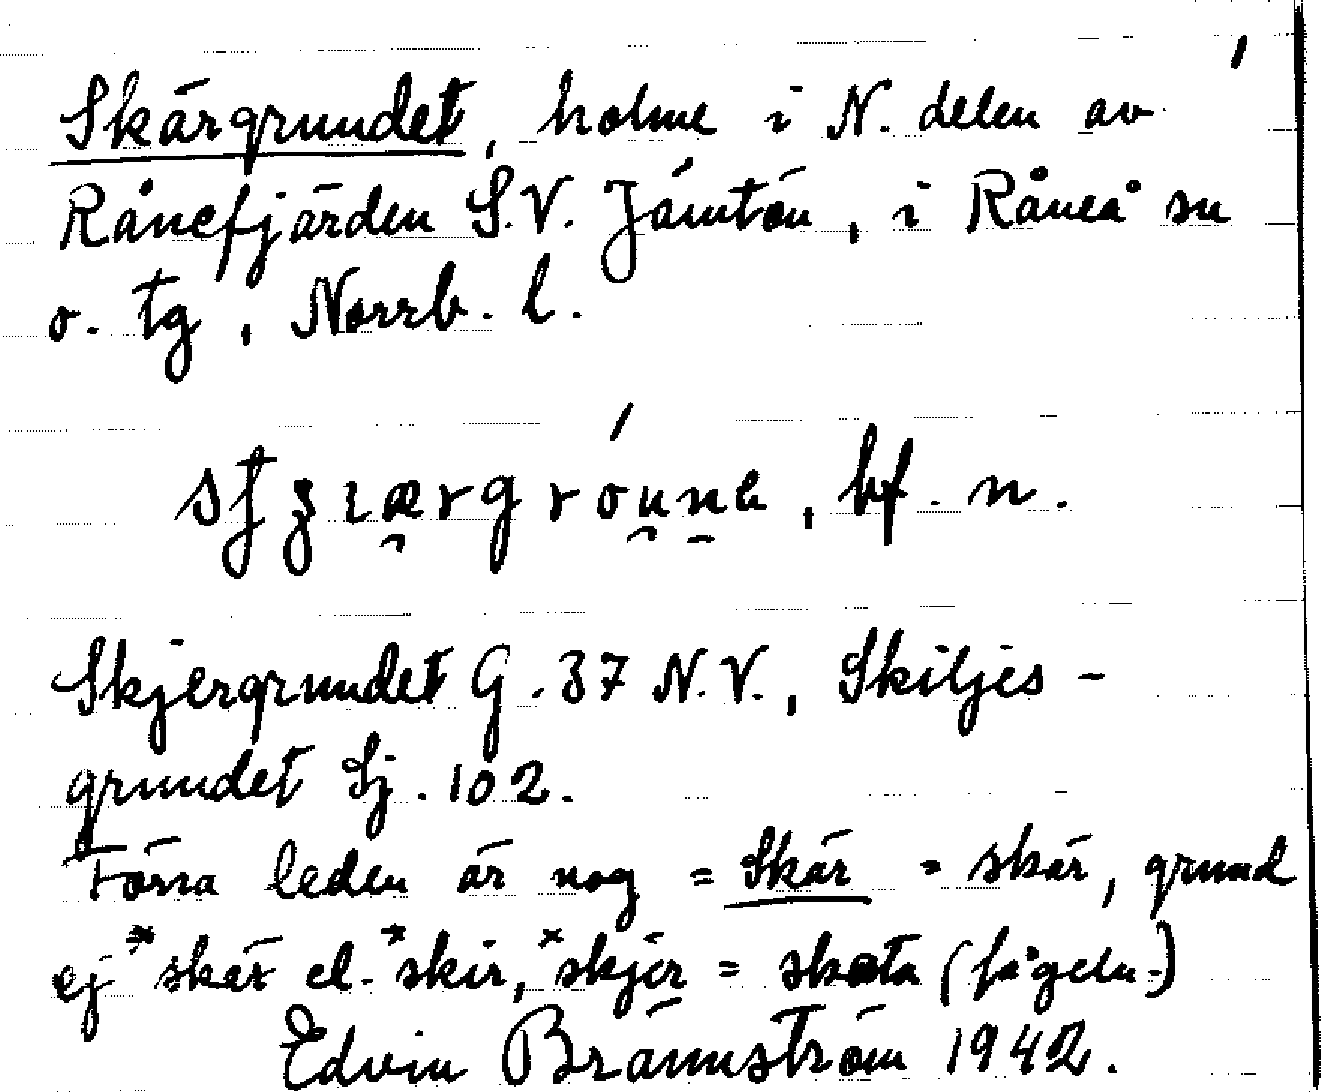 Skärgrundet, holme i N. delen av
Rånefjärden S.V. Jämtön, i Råneå sn
o. tg, Norrb. l.
bf. n.
Skjergrundet G. 37 N.V., Skiljes-
grundet Sj. 102.
Förra leden är nog = Skär = skär, grund
ej *skär el. *skir, *skjer = skata (fågeln)
Edvin Brännström 1942.